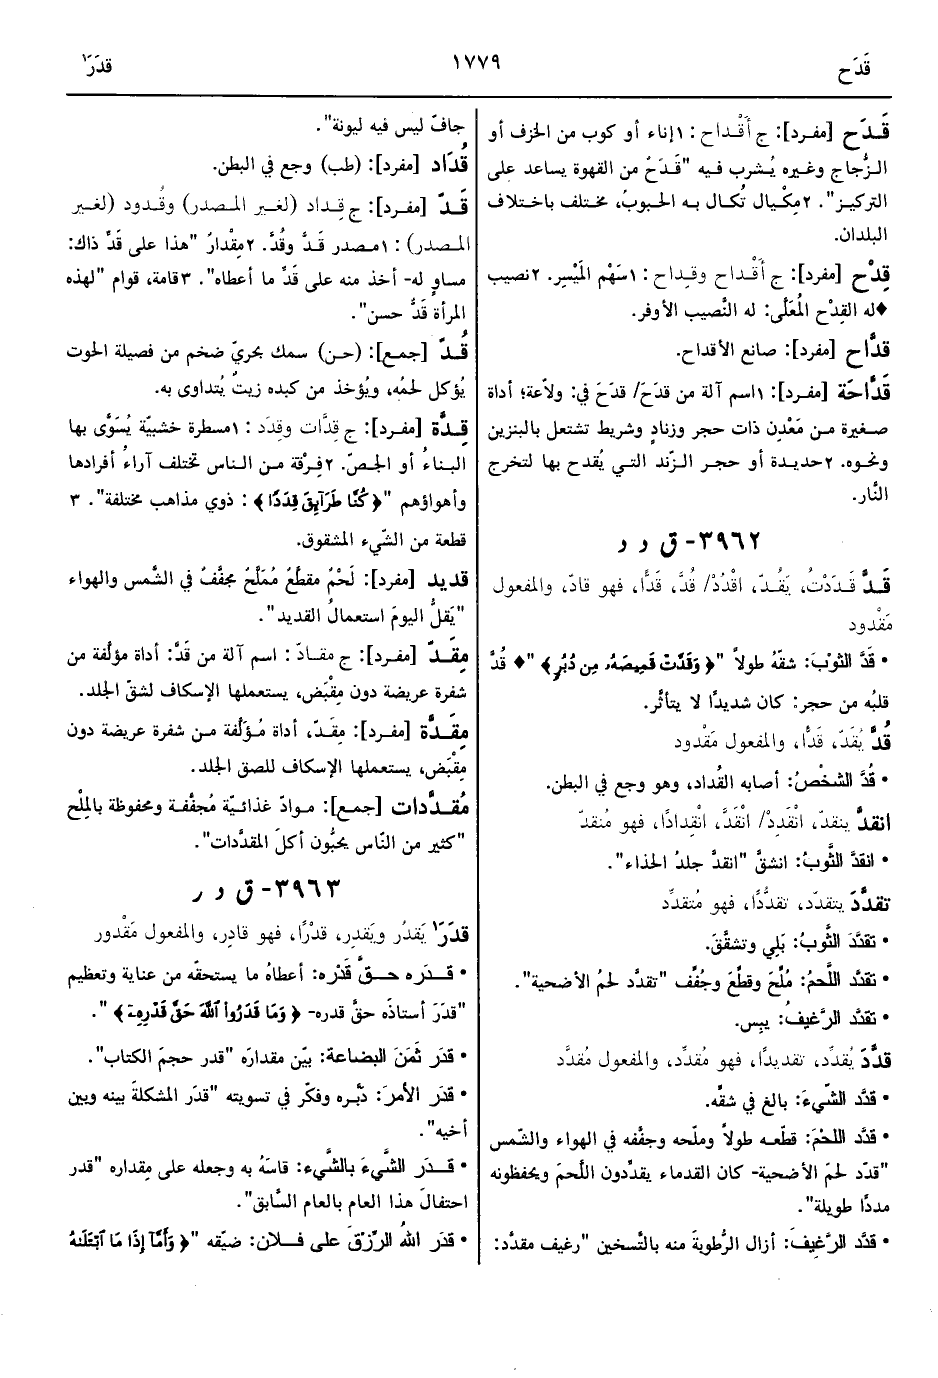 قَدَح
١٧٧٩
قدَرَ١
قَـدَح [مفـرد]: ج أَقْـداح : ١إنـاء أو كوب من الخزف أو
الـزُّجاج وغيـره يُـشرب فيـه "قَـدَحٌ من القهوة يساعد على
التركيـز". ٢مِكْيـال تُكـال بـه الحبوبُ، مختلف باختلاف
البلدان.
قِدْح [مفرد]: ج أَقْـداح وقِـداح : ١سَهْم المَيْسِر. ٢نصيب
♦له القِدْح المُعَلَّى: له النَّصيب الأوفر.
قدَّاح [مفرد]: صانع الأقداح.
قَدَّاحَة [مفرد]: ١اسم آلة من قدَحَ/ قدَحَ في: ولاَّعة؛ أداة
صـغيرة مـن مَعْدِن ذات حجر وزنادٍ وشريط تشتعل بالبنزين
ونحـوه. ٢حديـدة أو حجـر الـزّند التـي يُقـدح بها لتخرج
النَّار.
٣٩٦٢- ق د د
قَـدَّ قَـدَدْتُ، يَقُـدّ، اقْدُدْ/ قُدَّ، قَدًّا، فهو قادّ، والمفعول
مَقْدود
• قَدَّ الثَّوْبَ: شقَّهُ طولاً "﴿وَقَدَّتْ قَمِيصَهُۥ مِن دُبُرٍ﴾" ♦ قُدَّ
قلبُه من حجر: كان شديدًا لا يتأثّر.
قُدَّ يُقَدّ، قَدًّا، والمفعول مَقْدود
• قُدَّ الشَّخْصُ: أصابه القُداد، وهو وجع في البطن.
انقدَّ ينقدّ، انْقَدِدْ/ انْقَدَّ، انْقِدادًا، فهو مُنقدّ
• انقدَّ الثَّوبُ: انشقَّ "انقدَّ جلدُ الحذاء".
تقدَّدَ يتقدّد، تقدُّدًا، فهو مُتقدِّد
• تقدَّدَ الثَّوبُ: بَلِي وتشقَّقَ.
• تقدَّد اللَّحمُ: مُلِّحَ وقطِّعَ وجُفِّف "تقدَّد لحمُ الأضحية".
• تقدَّد الرَّغيفُ: يبِس.
قدَّدَ يُقدِّد، تقديدًا، فهو مُقدِّد، والمفعول مُقدَّد
• قدَّد الشَّيءَ: بالغ في شقِّه.
• قدَّد اللحْمَ: قطّعـه طولاً وملّحه وجفَّفه في الهواء والشّمس
"قدّد لحمَ الأضحية- كان القدماء يقدِّدون اللَّحمَ ويحفظونه
مددًا طويلة".
• قدَّد الرَّغيفَ: أزال الرُّطوبةَ منه بالتَّسخين "رغيف مقدَّد:
جافّ ليس فيه ليونة".
قُدَاد [مفرد]: (طب) وجع في البطن.
قَـدّ [مفـرد]: ج قِـداد (لغـير المـصدر) وقُـدود (لغـير
المـصدر) : ١مـصدر قَـدَّ وقُدَّ. ٢مِقْدارُ "هذا على قَدِّ ذاك:
مساوٍ له- أخذ منه على قَدِّ ما أعطاه". ٣قامة، قوام "لهذه
المرأة قَدٌّ حسن".
قُـدّ [جمـع]: (حـن) سمـك بحـريّ ضـخم مـن فصيلة الحوت
يُؤكل لحمُه، ويُؤخذ من كبده زيتٌ يُتداوى به.
قِـدَّة [مفـرد]: ج قِدَّات وقِدَد : ١مسطرة خشبيّة يُسَوَّى بها
البـناءُ أو الجـصّ. ٢فِـرْقة مـن الـناس تختلف آراءُ أفرادها
وأهواؤهم "﴿كُنَّا طَرَآئِقَ قِدَدًا﴾ : ذوي مذاهب مختلفة". ٣
قطعة من الشّيء المشقوق.
قديد [مفرد]: لَحْمٌ مقطعٌ مُملّحٌ مجفَّفٌ في الشّمس والهواء
"يَقلُّ اليومَ استعمالُ القديد".
مِقَـدّ [مفـرد]: ج مقـادّ : اسـم آلـة من قَدَّ: أداة مؤلّفة من
شفرة عريضة دون مِقْبَض، يستعملها الإسكاف لشقّ الجلد.
مِقَـدَّة [مفـرد]: مِقَـدّ، أداة مُـؤَلَّفة مـن شـفرة عريضة دون
مِقْبَض، يستعملها الإسكاف للصق الجلد.
مُقـدَّدات [جمـع]: مـوادّ غذائيّـة مُجفَّفـة ومحفوظة بالمِلْح
"كثير من النّاس يحبُّون أكلَ المقدَّدات".
٣٩٦٣- ق د ر
قدَرَ١ يَقدُر ويَقدِر، قدْرًا، فهو قادِر، والمفعول مَقْدور
• قـدَره حـقَّ قَدْره: أعطاهُ ما يستحقّه من عناية وتعظيم
"قدَرَ أستاذَه حقَّ قدره- ﴿وَمَا قَدَرُوا۟ ٱللَّهَ حَقَّ قَدْرِهِۦٓ﴾ ".
• قدَر ثَمَنَ البِضاعة: بيَّن مقدارَه "قدر حجمَ الكتاب".
• قدَر الأمرَ: دبَّره وفكّر في تسويته "قدَر المشكلةَ بينه وبين
أخيه".
• قـدَر الشَّيءَ بالشَّيء: قاسَهُ به وجعله على مِقداره "قدر
احتفالَ هذا العام بالعام السَّابق".
• قدَر اللهُ الرِّزقَ على فـلان: ضيَّقه "﴿وَأَمَّآ إِذَا مَا ٱبْتَلَىٰهُ